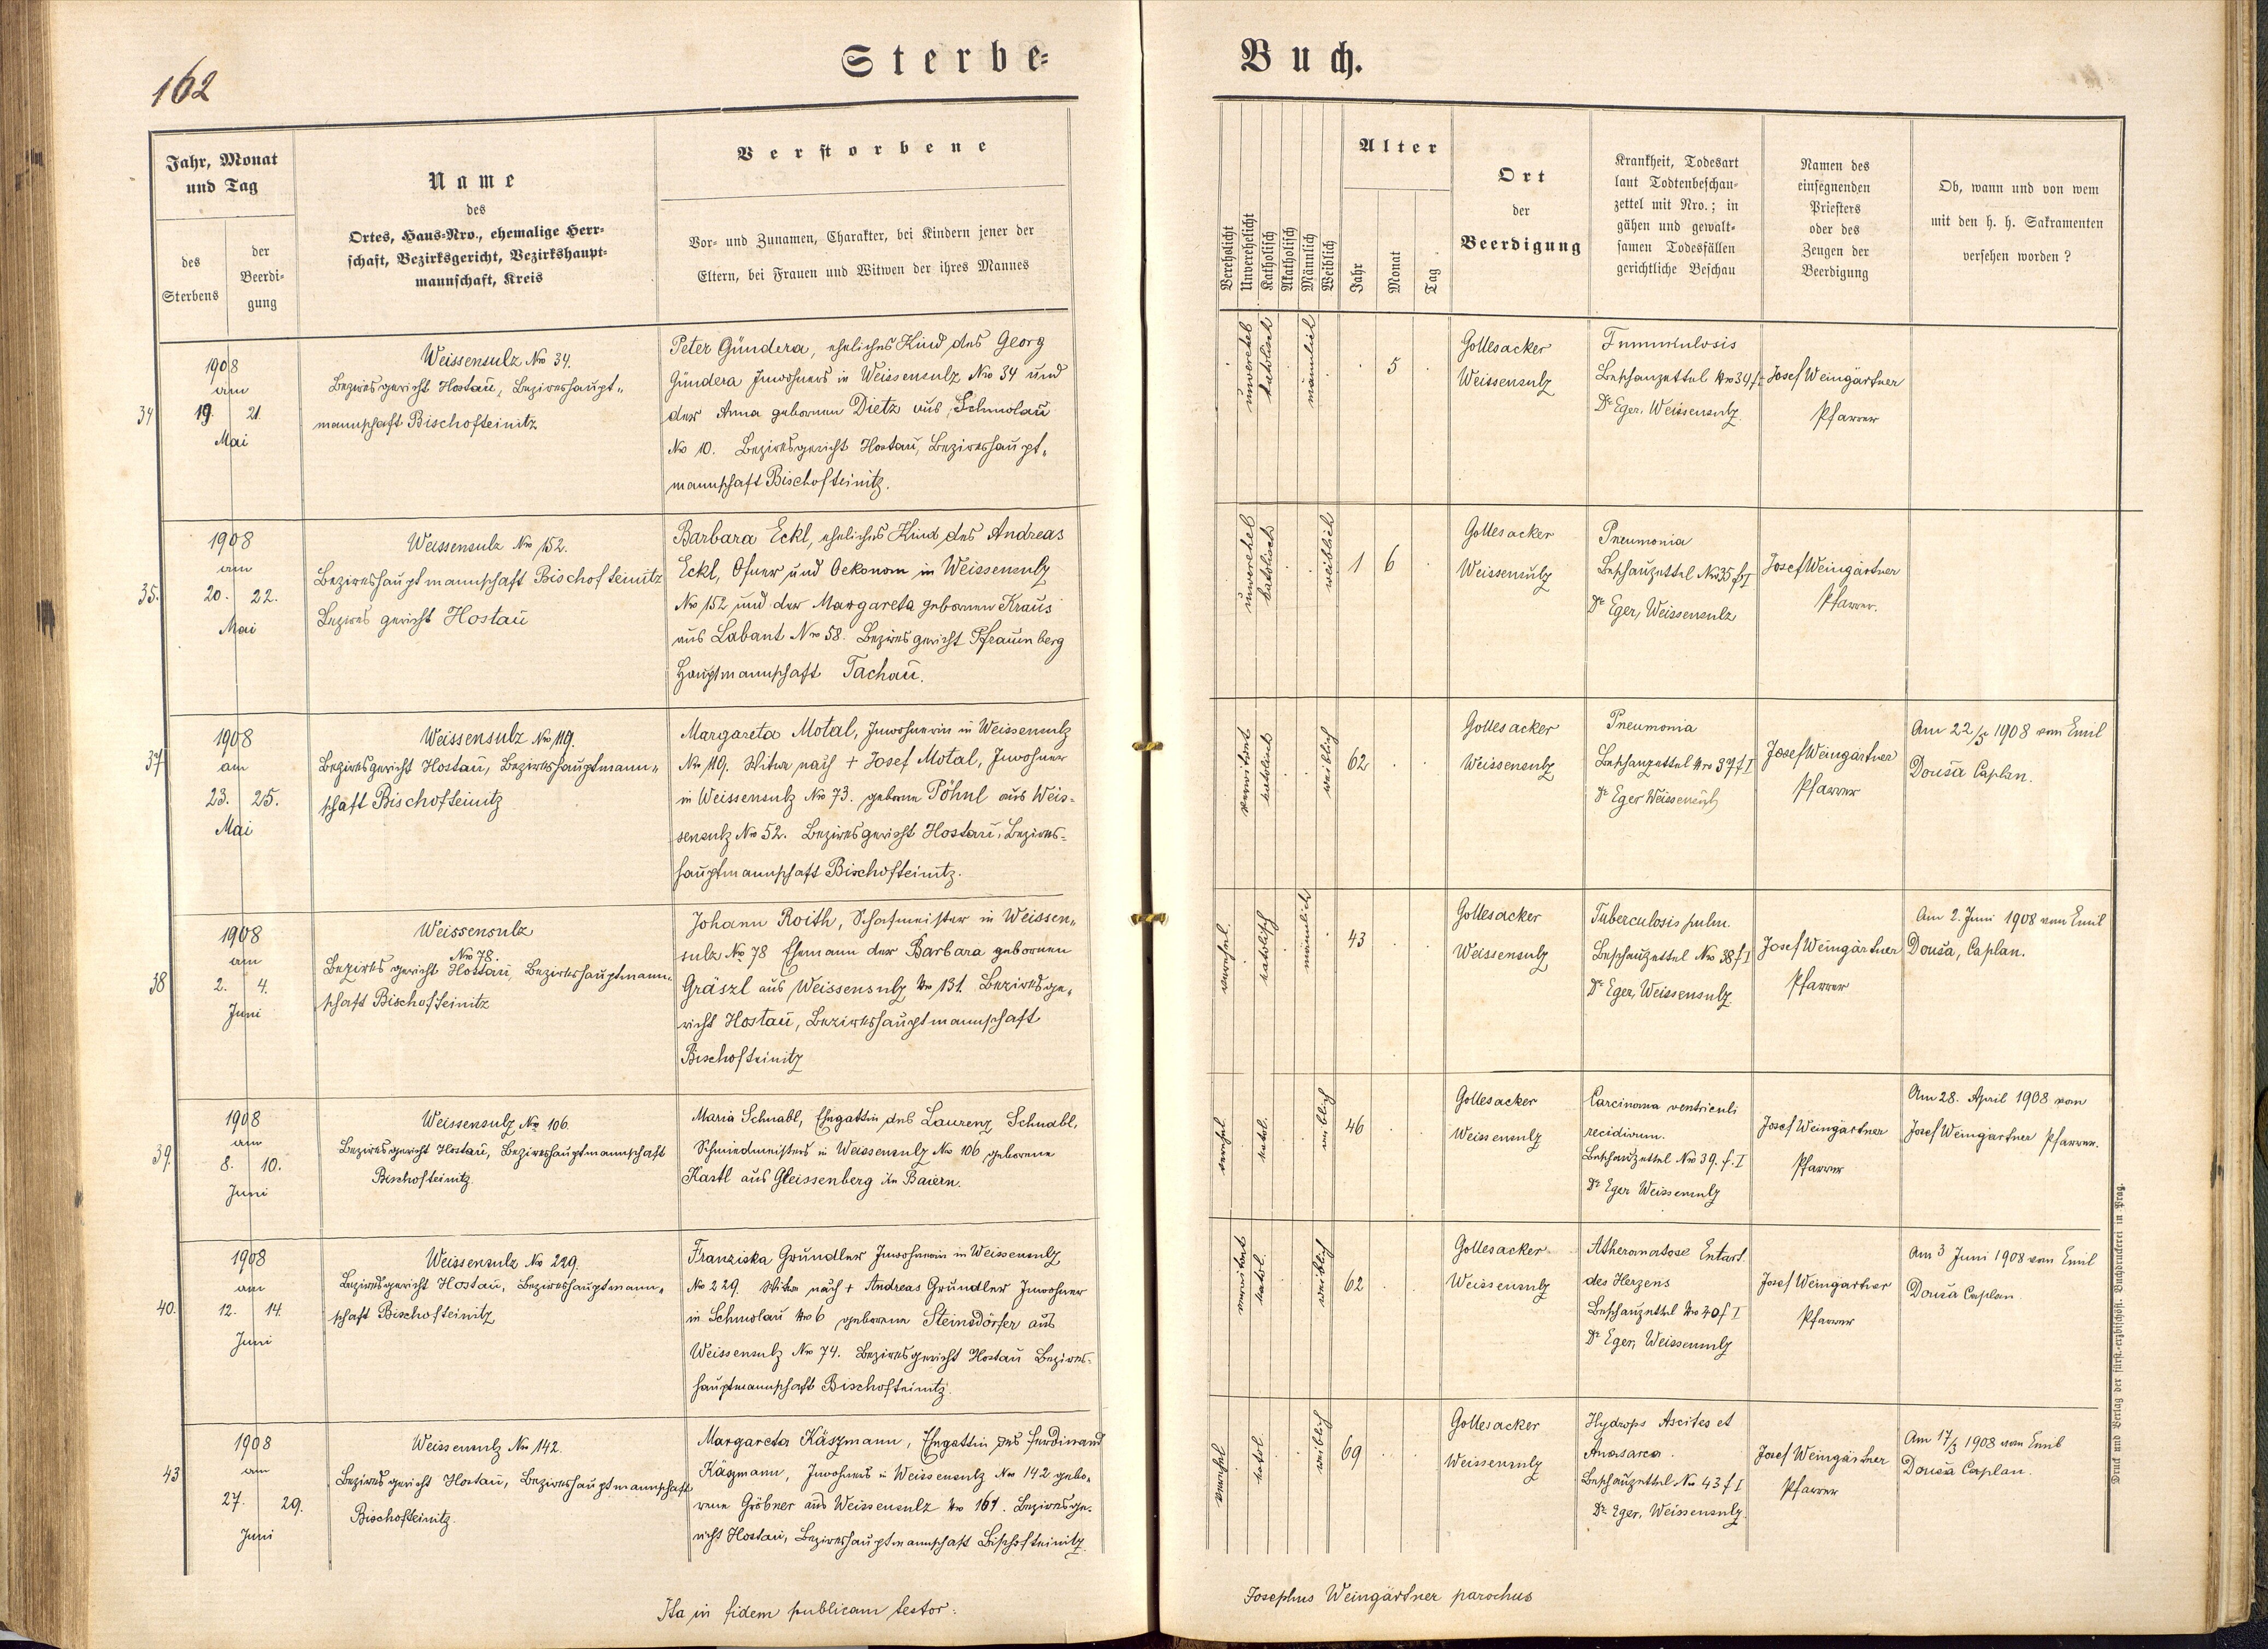 162
Sterbe-
Buch.
Jahr, Monat
und Tag
des
Sterbens
der
Beerdi-
gung
Name
des
Ortes, Haus-Nro., ehemalige Herr-
schaft, Bezirksgericht, Bezirkshaupt-
mannschaft, Kreis
Verstorbene
Vor- und Zunamen, Charakter, bei Kindern jener der
Eltern, bei Frauen und Witwen der ihres Mannes
Verehelicht
Unverehelicht
Katholisch
Akatholisch
Männlich
Weiblich
Alter
Jahr
Monat
Tag
Ort
der
Beerdigung
Krankheit, Todesart
laut Todtenbeschau-
zettel mit Nro.; in
gähen und gewalt-
samen Todesfällen
gerichtliche Beschau
Namen des
einsegnenden
Priesters
oder des
Zeugen der
Beerdigung
Ob, wann und von wem
mit den h. h. Sakramenten
versehen worden?
34
1908
am
19. 21.
Mai
Weissensulz Nro 34.
Bezirksgericht Hostau, Bezirkshaupt-
mannschaft Bischofteinitz
Peter Gündera, eheliches Kind des Georg
Gündera Inwohners in Weissensulz Nro 34 und
der Anna gebornen Dietz aus Schmolau
No 10. Bezirksgericht Hostau, Bezirkshaupt-
mannschaft Bischofteinitz.
unverehel
katholisch
männlich
5
Gottesacker
Weissensulz
Beschauzettel Nro 34 f I
Dr Eger, Weissensulz.
Josef Weingärtner
Pfarrer
35.
1908
am
20. 22.
Mai
Weissensulz Nro 152.
Bezirkshauptmannschaft Bischofteinitz
Bezirksgericht Hostau
Barbara Eckl, eheliches Kind des Andreas
Eckl, Ofner und Oekonom in Weissensulz
No 152 und der Margareta gebornen Kraus
aus Labant Nro 58. Bezirksgericht Pfraumberg
Hauptmannschaft Tachau.
unverehel
katolisch
weiblich
1 6
Gottesacker
Weissensulz
Pneumonia
Beschauzettel Nro 35 f I
Dr Eger, Weissensulz
Josef Weingärtner
Pfarrer.
37
1908
am
23. 25.
Mai
Weissensulz Nro 119.
Bezirksgericht Hostau, Bezirkshauptmann-
schaft Bischofteinitz
Margareta Motal, Inwohnerin in Weissensulz
No 119. Witwe nach + Josef Motal, Inwohner
in Weissensulz No 73. geborne Pöhnl aus Weis-
sensulz No 52. Bezirksgericht Hostau, Bezirks-
hauptmannschaft Bischofteinitz.
verwitwet
katolisch
weiblich
62
Gottesacker
Weissensulz
Pneumonia
Beschauzettel Nro 37 f I
Dr Eger Weissensulz
Josef Weingärtner
Pfarrer
Am 22/5 1908 von Emil
Douša Caplan.
38
1908
am
2. 4.
Juni
Weissensulz
Nro 78.
Bezirksgericht Hostau, Bezirkshauptmann-
schaft Bischofteinitz
Johann Roith, Schafmeister in Weissen-
sulz No 78 Ehemann der Barbara gebornen
Gräszl aus Weissensulz No 131. Bezirksge-
richt Hostau, Bezirkshauptmannschaft
Bischofteinitz
verehel.
katolisch
männlich
43
Gottesacker
Weissensulz
Tuberculosis pulm.
Beschauzettel Nro 38 f I
Dr Eger, Weissensulz
Josef Weingärtner
Pfarrer
Am 2. Juni 1908 von Emil
Douša, Caplan.
39.
1908
am
8. 10.
Juni
Weissensulz No 106
Bezirksgericht Hostau, Bezirkshauptmannschaft
Bischofteinitz.
Maria Schnabl, Ehegattin des Laurenz Schnabl,
Schmiedmeisters in Weissensulz No 106 geborene
Hartl aus Gleissenberg in Baiern.
verehel.
katol.
weiblich
46
Gottesacker
Weissensulz
Carcinoma ventriculi
recidivum.
Beschauzettel Nro 39. f. I
Dr Eger Weissensulz
Josef Weingärtner
Pfarrer
Am 28. April 1908 vom
Josef Weingärtner Pfarrer.
40.
1908
am
12. 14
Juni
Weissensulz No 229.
Bezirksgericht Hostau, Bezirkshauptmann-
schaft Bischofteinitz
Franziska Gründler Inwohnerin in Weissensulz
No 229. Witwe nach + Andreas Gründler Inwohner
in Schmolau No 6 geborene Steinsdörfer aus
Weissensulz No 74. Bezirksgericht Hostau Bezirks-
hauptmannschaft Bischofteinitz.
verwitwet
katol.
weiblich
62
Gottesacker
Weissensulz
Atheromatose Entart.
des Herzens
Beschauzettel No 40 f I
Dr Eger, Weissensulz
Josef Weingärtner
Pfarrer
Am 3 Juni 1908 von Emil
Douša Caplan
43
1908
am
27. 29.
Juni
Weissensulz No 142.
Bezirksgericht Hostau, Bezirkshauptmannschaft
Bischofteinitz.
Margareta Käszmann, Ehegattin des Ferdinand
Käszmann, Inwohners in Weissensulz No 142 gebo-
rene Gröbner aus Weissensulz No 161. Bezirksge-
richt Hostau, Bezirkshauptmannschaft Bischofteinitz.
katol.
weiblich
69
Gottesacker
Weissensulz
Hydrops Ascites et
Anasarca.
Beschauzettel No 43 f I
Dr Eger, Weissensulz.
Josef Weingärtner
Pfarrer
Am 17/3 1908 von Emil
Douša Caplan.
Ita in fidem publicam testor:
Josephus Weingärtner parochus
Druck und Verlag der fürst.-erzbischöfl. Buchdruckerei in Prag.